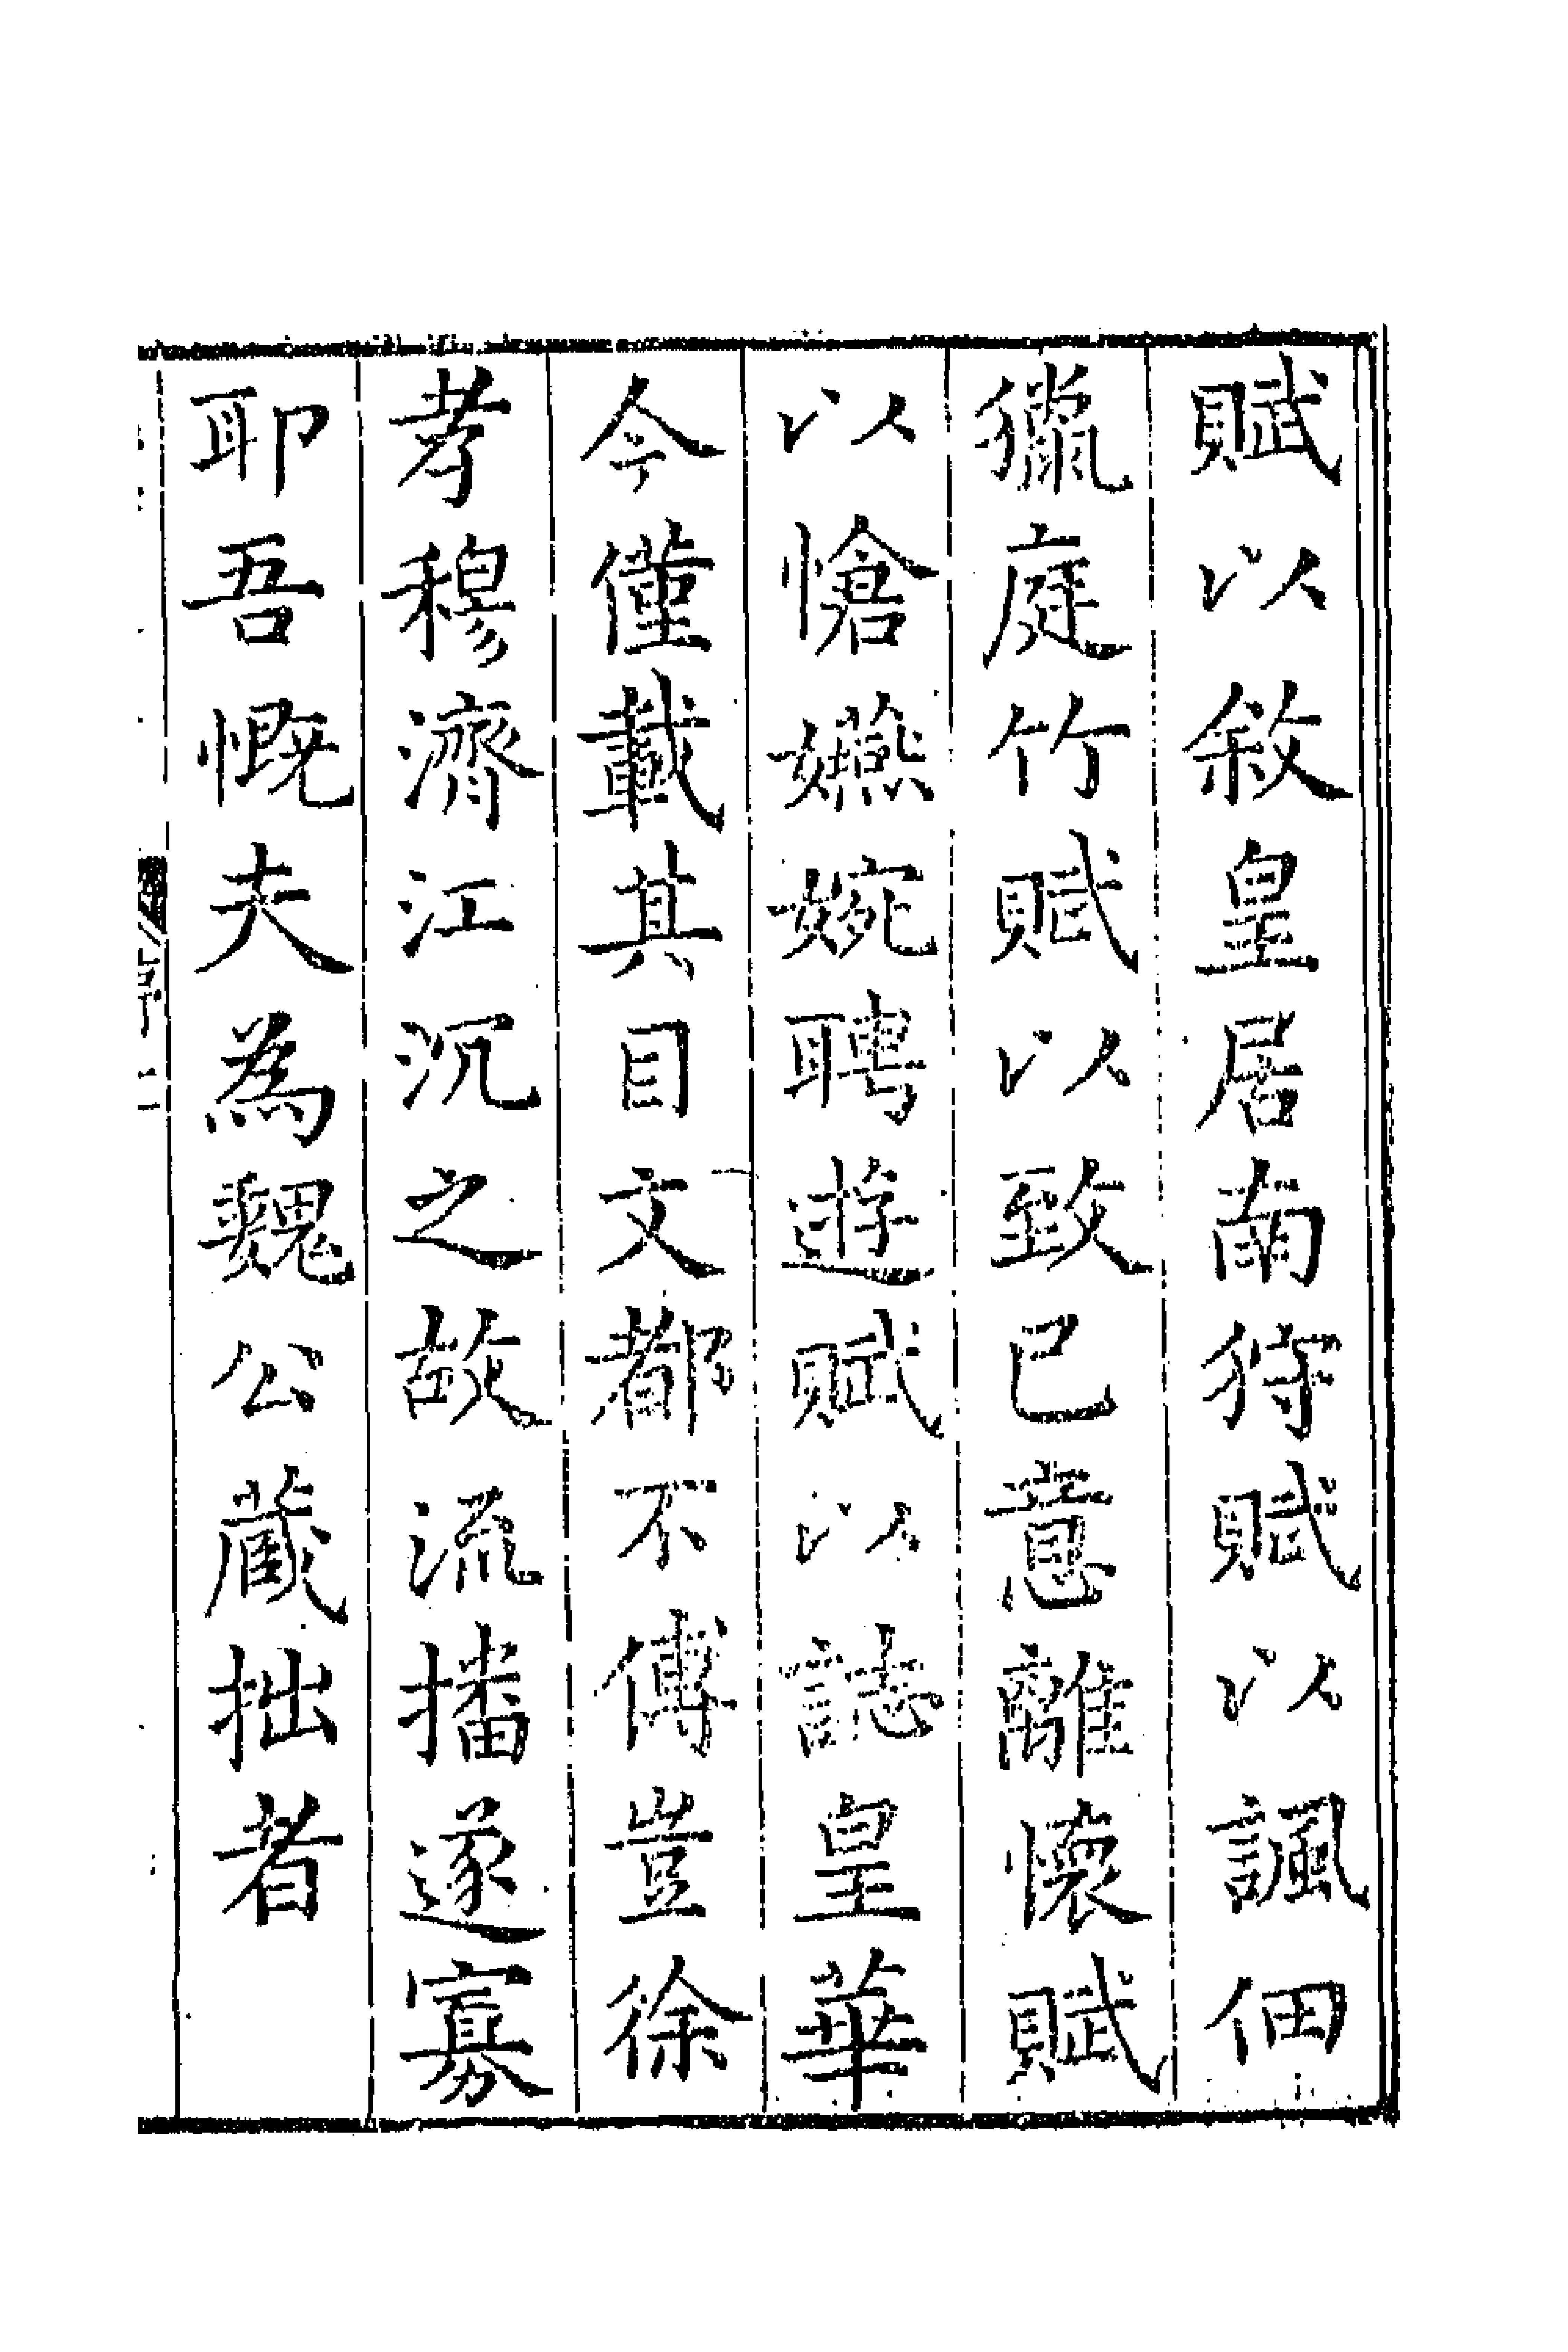 賦以敘皇居南狩賦以諷佃
獵庭竹賦以致己意離懷賦
以愴嬿婉聘遊賦以誌皇華
今僅載其目文都不傳豈徐
孝穆濟江沉之故流播遂寡
耶吾慨夫為魏公蔵拙者